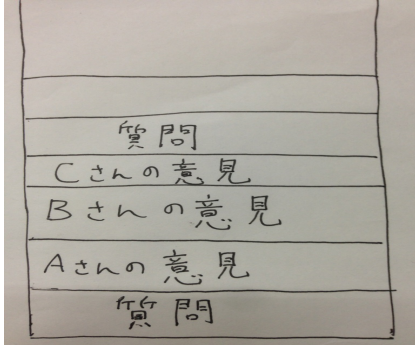 質問
Cさんの意見
Bさんの意見
Aさんの意見
質問